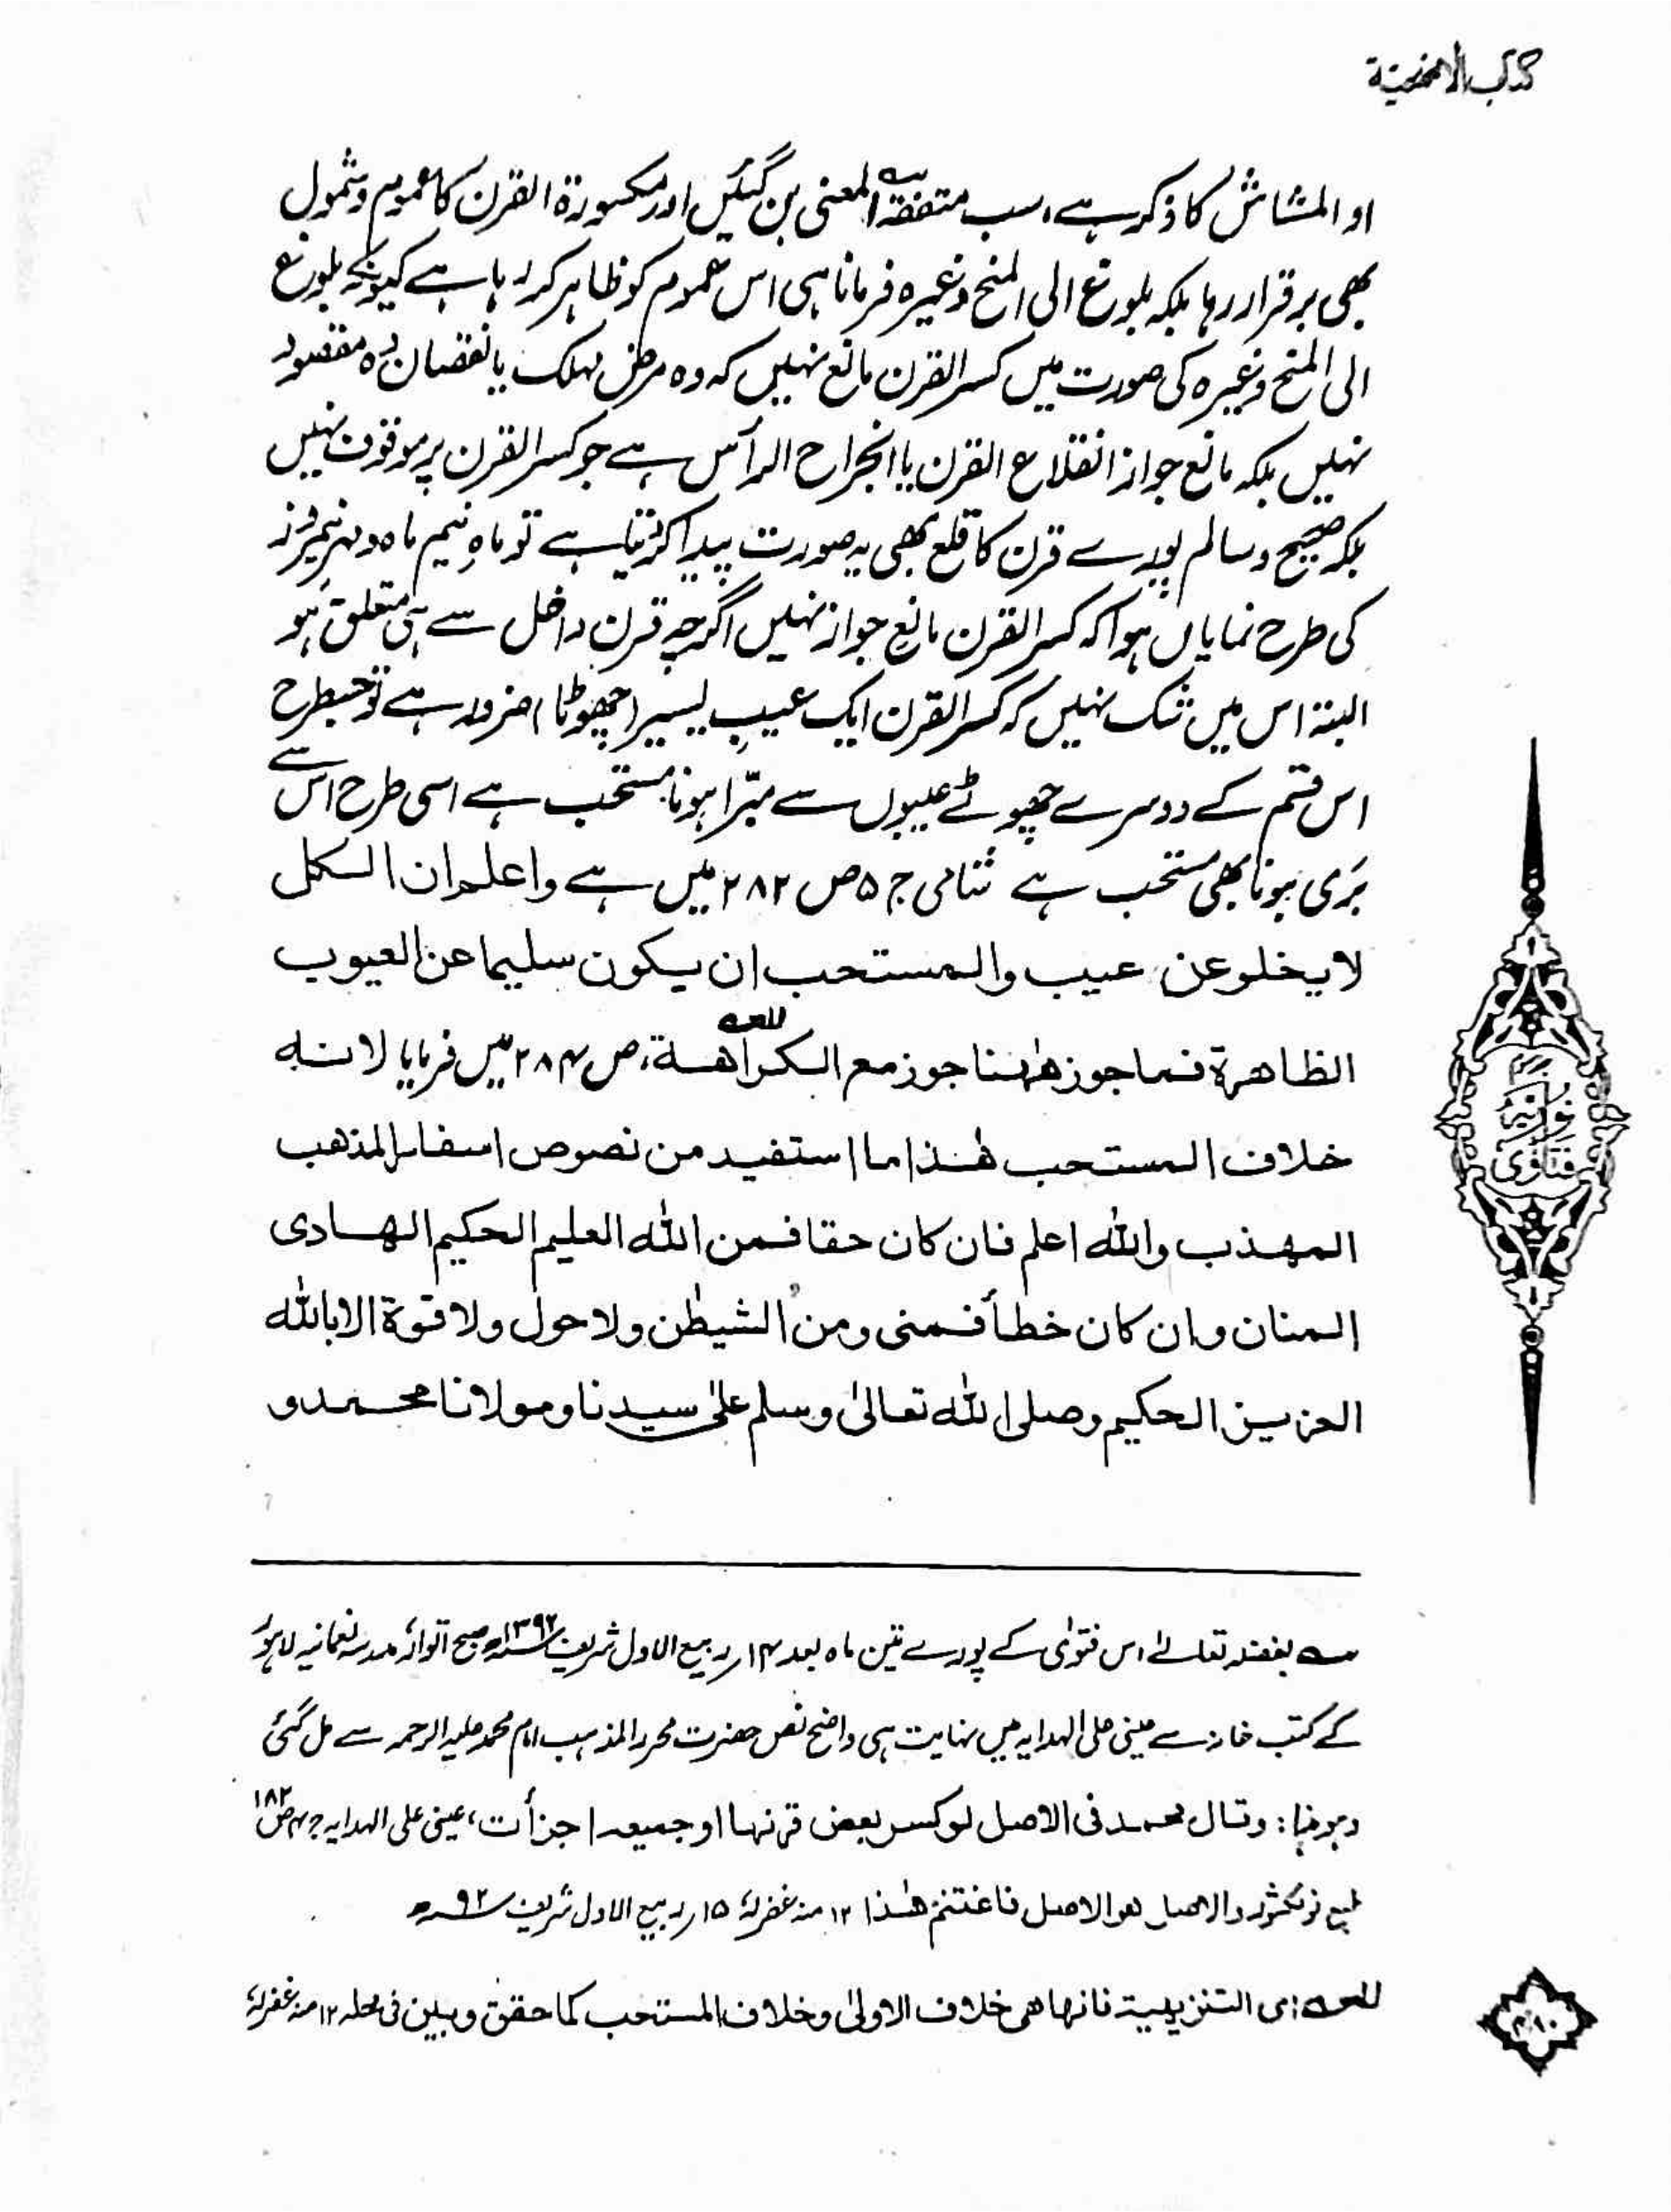 کتاب الاضحیۃ
او المشاش کا ذکر ہے، سب متفقۃ المعنی بن گئیں اور مکسورۃ القرن کا عموم و شمول
بھی برقرار رہا بلکہ بلوغ الی المنح وغیرہ فرمانا ہی اس عموم کو ظاہر کر رہا ہے کیونکہ بلوغ
الی المنح وغیرہ کی صورت میں کسر القرن مانع نہیں کہ وہ مرض مہلک یا نقصان دہ مقصود
نہیں بلکہ مانع جواز انقلاع القرن یا انجراح الرأس ہے جو کسر القرن پر موقوف نہیں
بلکہ صحیح و سالم پورے قرن کا قلع بھی یہ صورت پیدا کرتا ہے تو ماہِ نیم ماہ و مہرِ نیمروز
کی طرح نمایاں ہوا کہ کسر القرن مانعِ جواز نہیں اگرچہ قرن داخل سے ہی متعلق ہو
البتہ اس میں شک نہیں کہ کسر القرن ایک عیبِ یسیر (چھوٹا) ضرور ہے تو جسطرح
اس قسم کے دوسرے چھوٹے عیبوں سے مبرّا ہونا مستحب ہے اسی طرح اس سے
بَری ہونا بھی مستحب ہے شامی ج ۵ ص ۲۸۲ میں ہے واعلم ان الکل
لا یخلو عن عیب والمستحب ان یکون سلیما عن العیوب
الظاھرۃ فما جوز ھٰہنا جوز مع الکراھۃ، ص ۲۸۴ میں فرمایا لانہ
خلاف المستحب ھٰذا ما استفید من نصوص اسفار المذھب
المھذب واللہ اعلم فان کان حقا فمن اللہ العلیم الحکیم الھادی
المنان وان کان خطأ فمنی ومن الشیطٰن ولا حول ولا قوۃ الا باللہ
العزیز الحکیم وصلی اللہ تعالیٰ وسلم علیٰ سیدنا ومولانا محمد و
فتاویٰ نوریہ
بفضلہ تعالےٰ اس فتوٰی کے پورے تین ماہ بعد ۱۴ ربیع الاول شریف ۱۳۹۲ھ صبح اتوار مدرسہ نعمانیہ لاہور
کے کتب خانہ سے عینی علی الہدایہ میں نہایت ہی واضح نص حضرت محرر المذہب امام محمد علیہ الرحمہ سے مل گئی
وہو ہٰذا: وقال محمد فی الاصل لو کسر بعض قرنہا او جمیعہ اجزأت، عینی علی الہدایہ ج ۴ ص ۱۸۲
طبع نولکشور والاصل ھو الاصل فاغتنم ھٰذا ۱۲ منہ غفرلہٗ ۱۵ ربیع الاول شریف ۹۲ھ
للعہ ای التنزیہیۃ فانہا ھی خلاف الاولیٰ وخلاف المستحب کما حقق وبین فی محلہ ۱۲ منہ غفرلہٗ